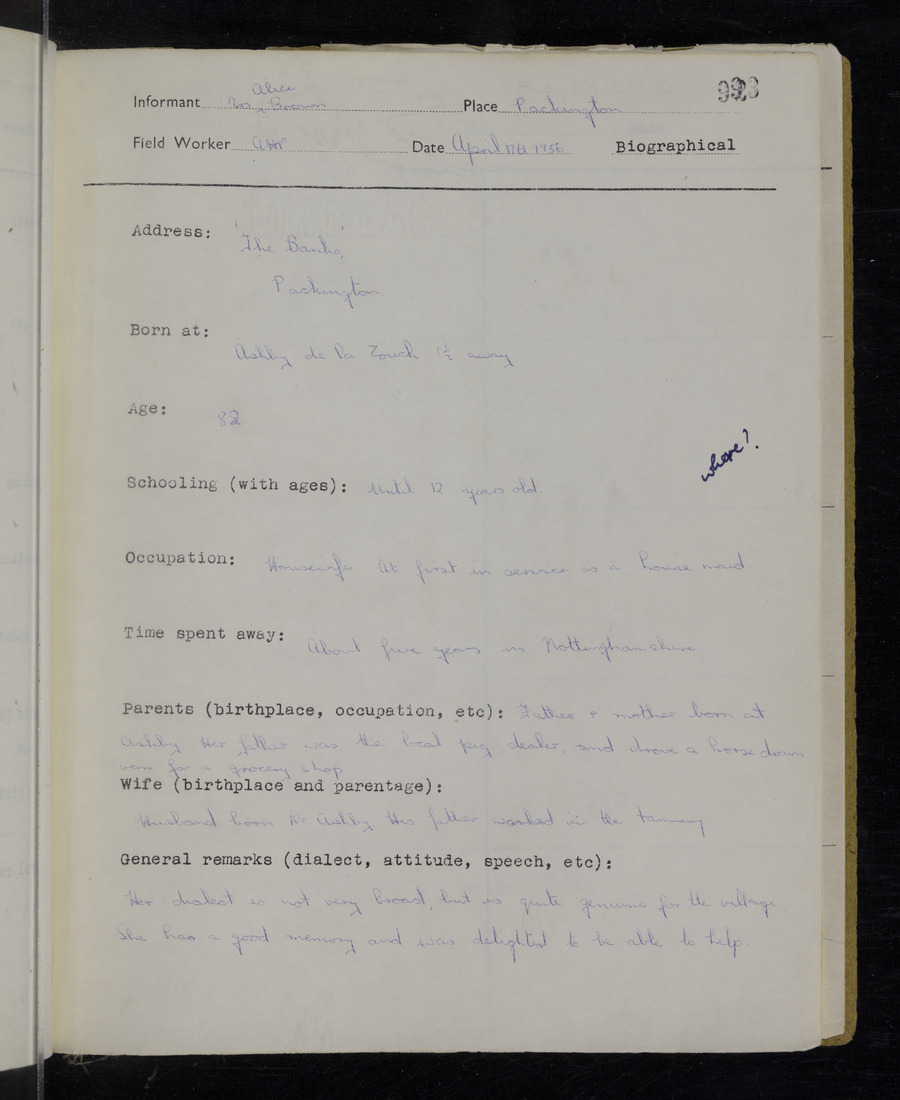 Alice 993
Informant Mrs Brown Place Packington
Field Worker Date April 12th 1956 Biographical
Address: 'The Banks',
Packington.
Born at:
Ashby de la Zouch 1½ away
Age: 82
where?
Schooling (with ages): Until 12 years old.
Occupation: Housewife At first in service as a house maid
Time spent away: About five years in Nottinghamshire
Parents (birthplace, occupation, etc): Father + mother born at
Ashby. Her father was the local pig dealer, and drove a horse drawn
van for a grocery shop
Wife (birthplace and parentage):
Husband born Nr Ashby. His father worked in the tannery
General remarks (dialect, attitude, speech, etc):
Her dialect is not very broad, but is quite genuine for the village.
She has a good memory and was delighted to be able to help.